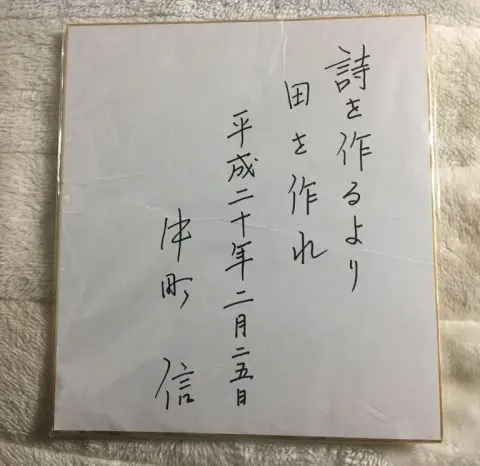 詩を作るより
田を作れ
平成二十年二月二五日
中町信